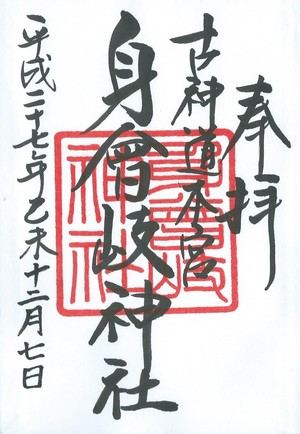 奉拝
古神道本宮
身曾岐神社
平成二十七年乙未十二月七日